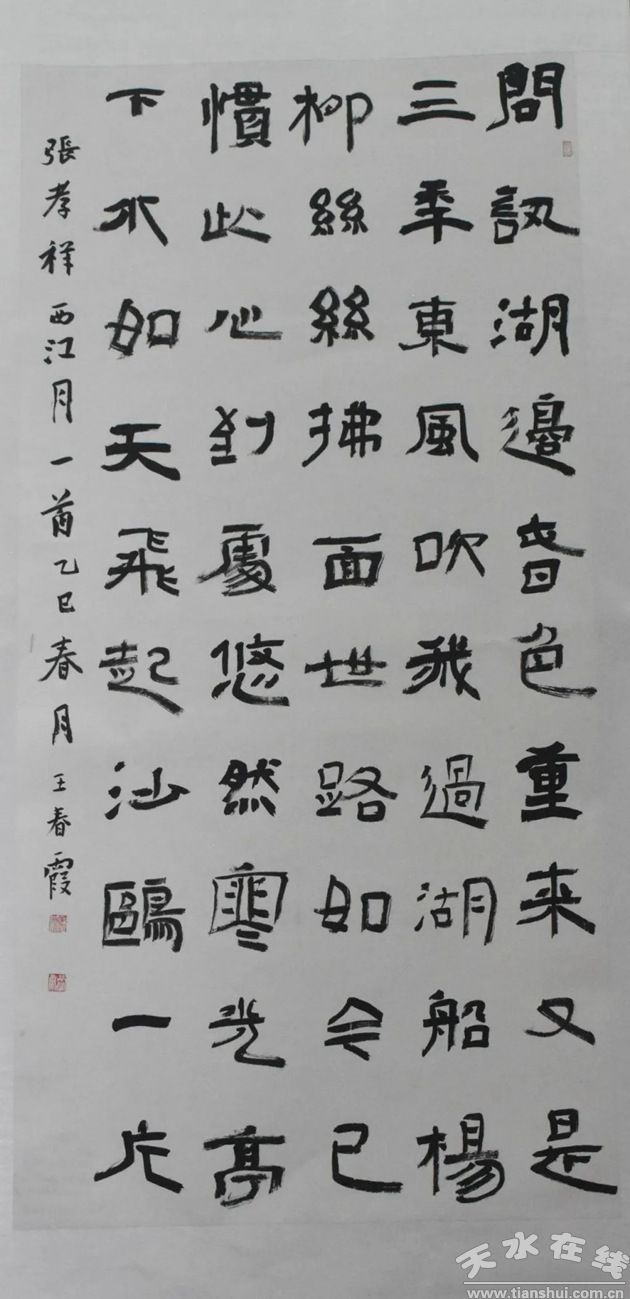 問訊湖邊春色重来又是
三年東風吹我過湖船楊
柳絲絲拂面世路如今已
慣此心到處悠然寒光亭
下水如天飛起沙鷗一片
張孝祥 西江月一首 乙巳春月 王春霞
天水在线
www.tianshui.com.cn